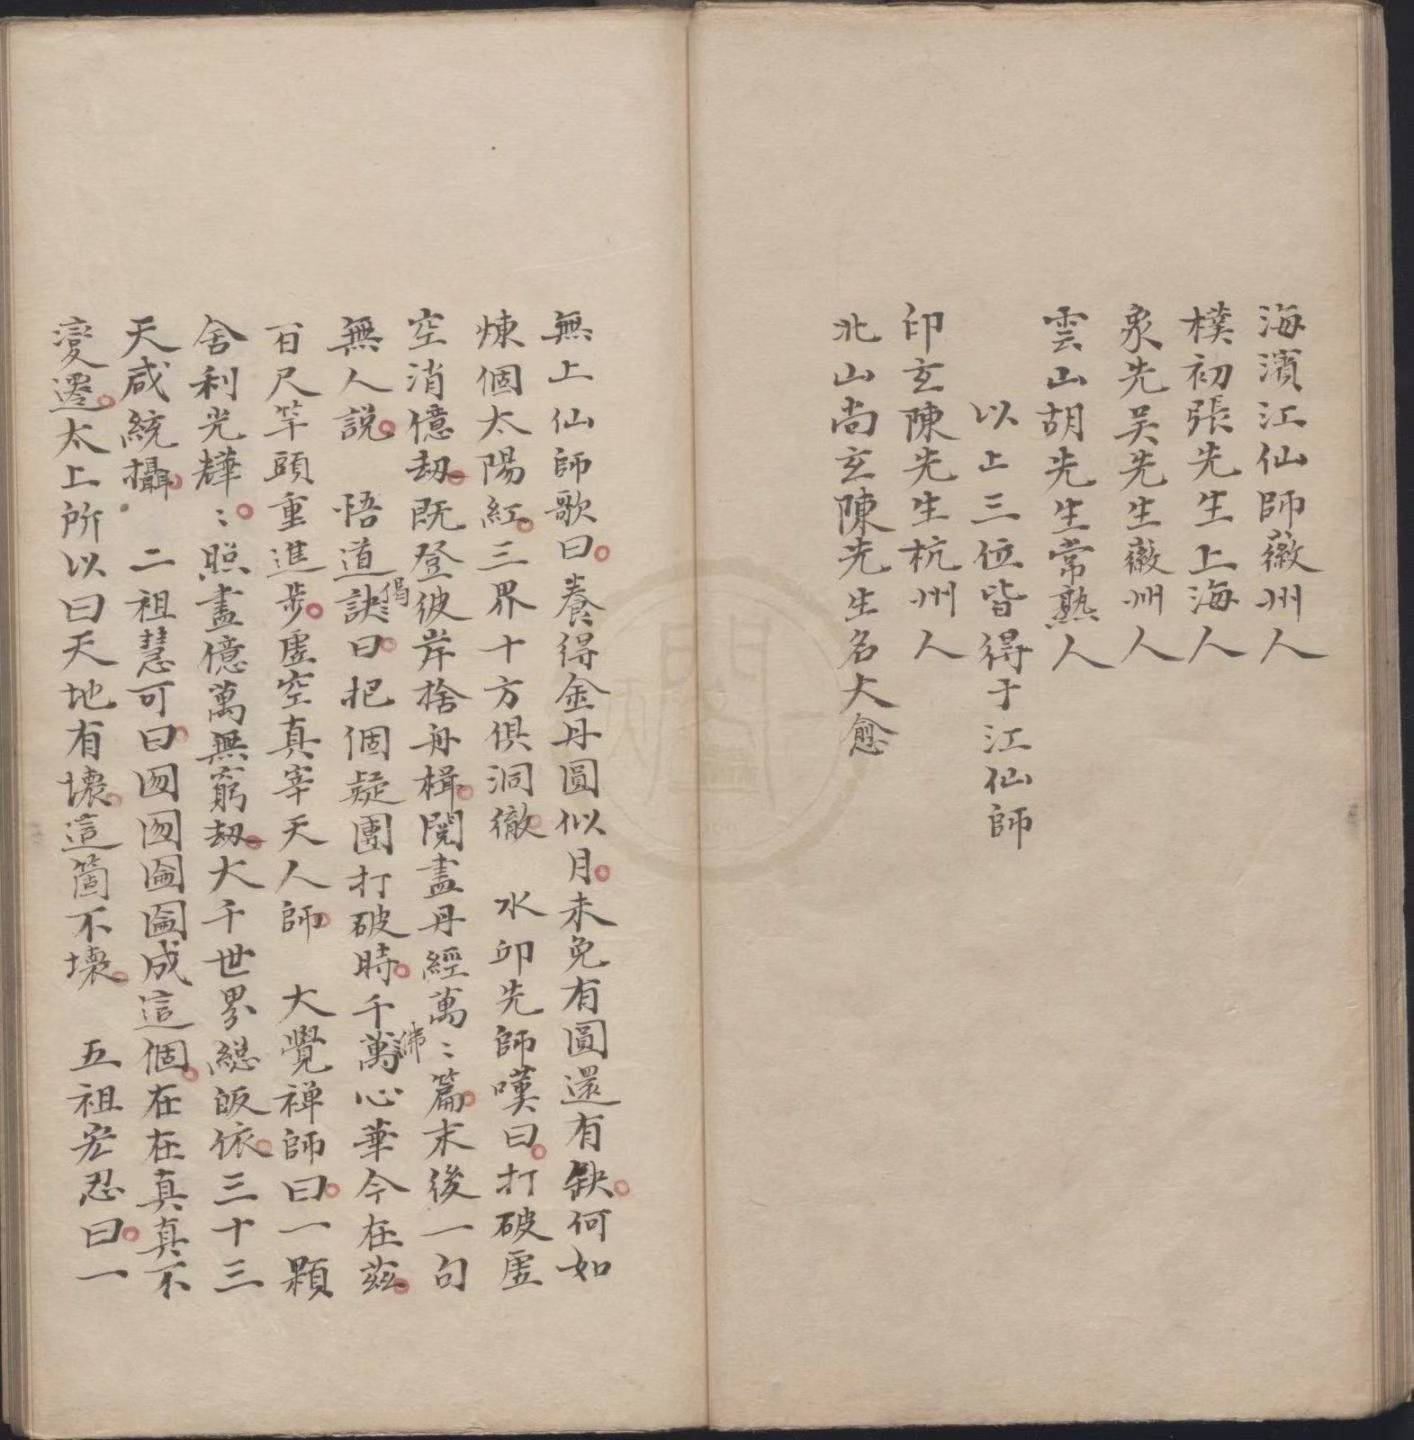 海濱江仙師徽州人
樸初張先生上海人
泉先吳先生徽州人
雲山胡先生常熟人
以上三位皆得于江仙師
印玄陳先生杭州人
北山尚玄陳先生名大愈
無上仙師歌曰養得金丹圓似月未免有圓還有缺何如
煉個太陽紅三界十方俱洞徹　水卯先師嘆曰打破虛
空消億劫既登彼岸捨舟楫閱盡丹經萬〻篇末後一句
無人說　悟道訣偈曰把個疑團打破時千萬佛心華今在茲
百尺竿頭重進步虛空真宰天人師　大覺禅師曰一顆
舍利光韡〻照盡億萬無窮劫大千世界總皈依三十三
天咸統攝　二祖慧可曰囫囫圇圇成這個在在真真不
變遷太上所以曰天地有壞這箇不壞　五祖宏忍曰一